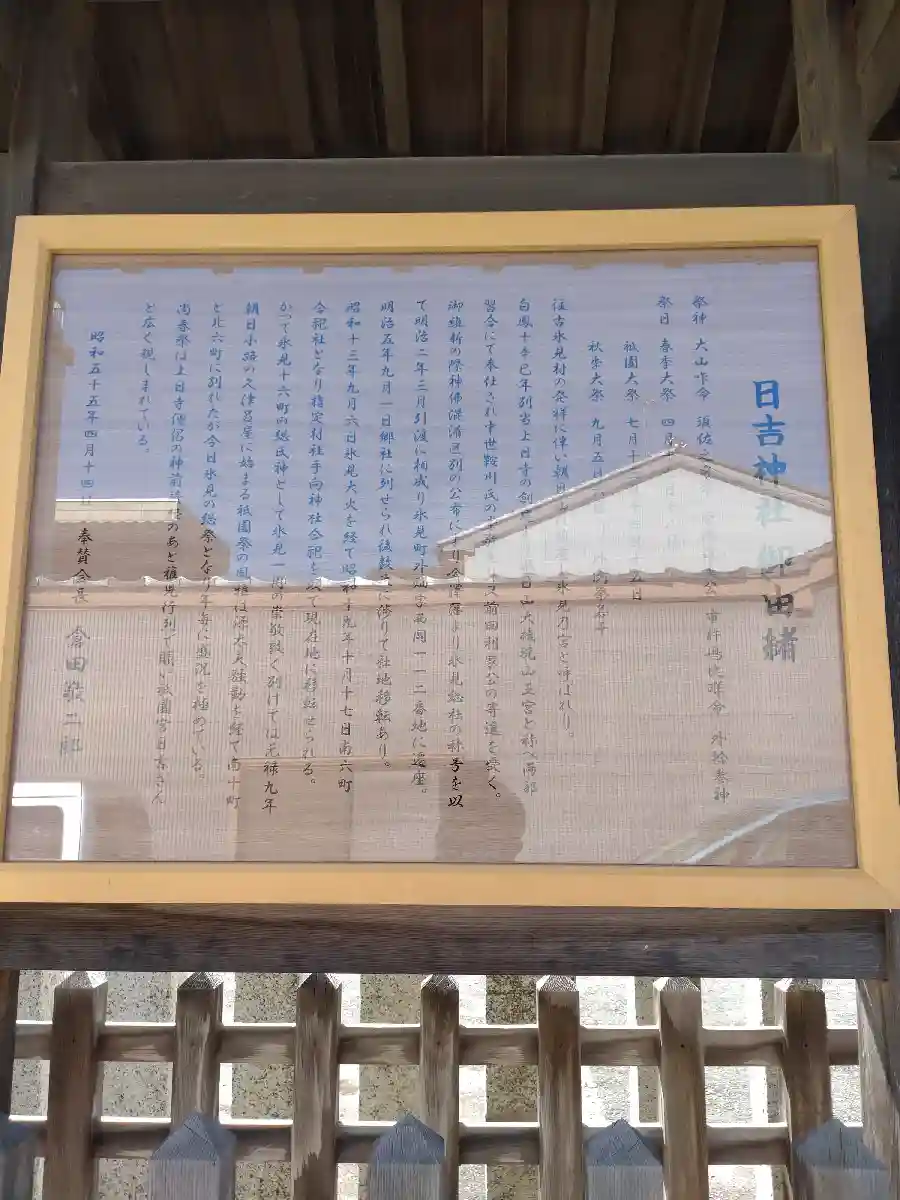 日吉神社 御由緒
祭神 大山咋命 須佐之 市杵嶋比咩命 外拾参神
祭日 春季大祭 四月
祇園大祭 七月十 日
秋季大祭 九月五日
往古氷見村の発祥に伴い朝日 氷見乃宮と呼ばれり。
白鳳十辛巳年別当上日寺の創 日山大権現山王宮と称へ両部
習合にて奉仕され中世鞍川氏の 又前田利家公の寄進を受く。
御維新の際神佛混淆区別の公布により金澤藩より氷見総社の称号を以
て明治二年三月引渡に相成り氷見町 一一二番地に遷座。
明治五年九月一日郷社に列せられ後数 に渉りて社地移転あり。
昭和十三年九月六日氷見大火を経て昭和 九年十月十七日南六町
合祀社となり指定村社手向神社合祀を以て現在地に移転せられる。
かつて氷見十六町内総氏神として氷見一 の崇敬殴く別けても元禄九年
朝日小路の久津呂屋に始まる祇園祭の風雅は源太夫騒動を経て南十町
と北六町に別れたが今日氷見の総祭となり年毎に盛況を極めている。
尚春祭は上日寺僧侶の神前 のあと稚児行列で賑い祇園宮日吉さん
と広く親しまれている。
昭和五十五年四月十四日 奉賛会長 倉田敬二郎